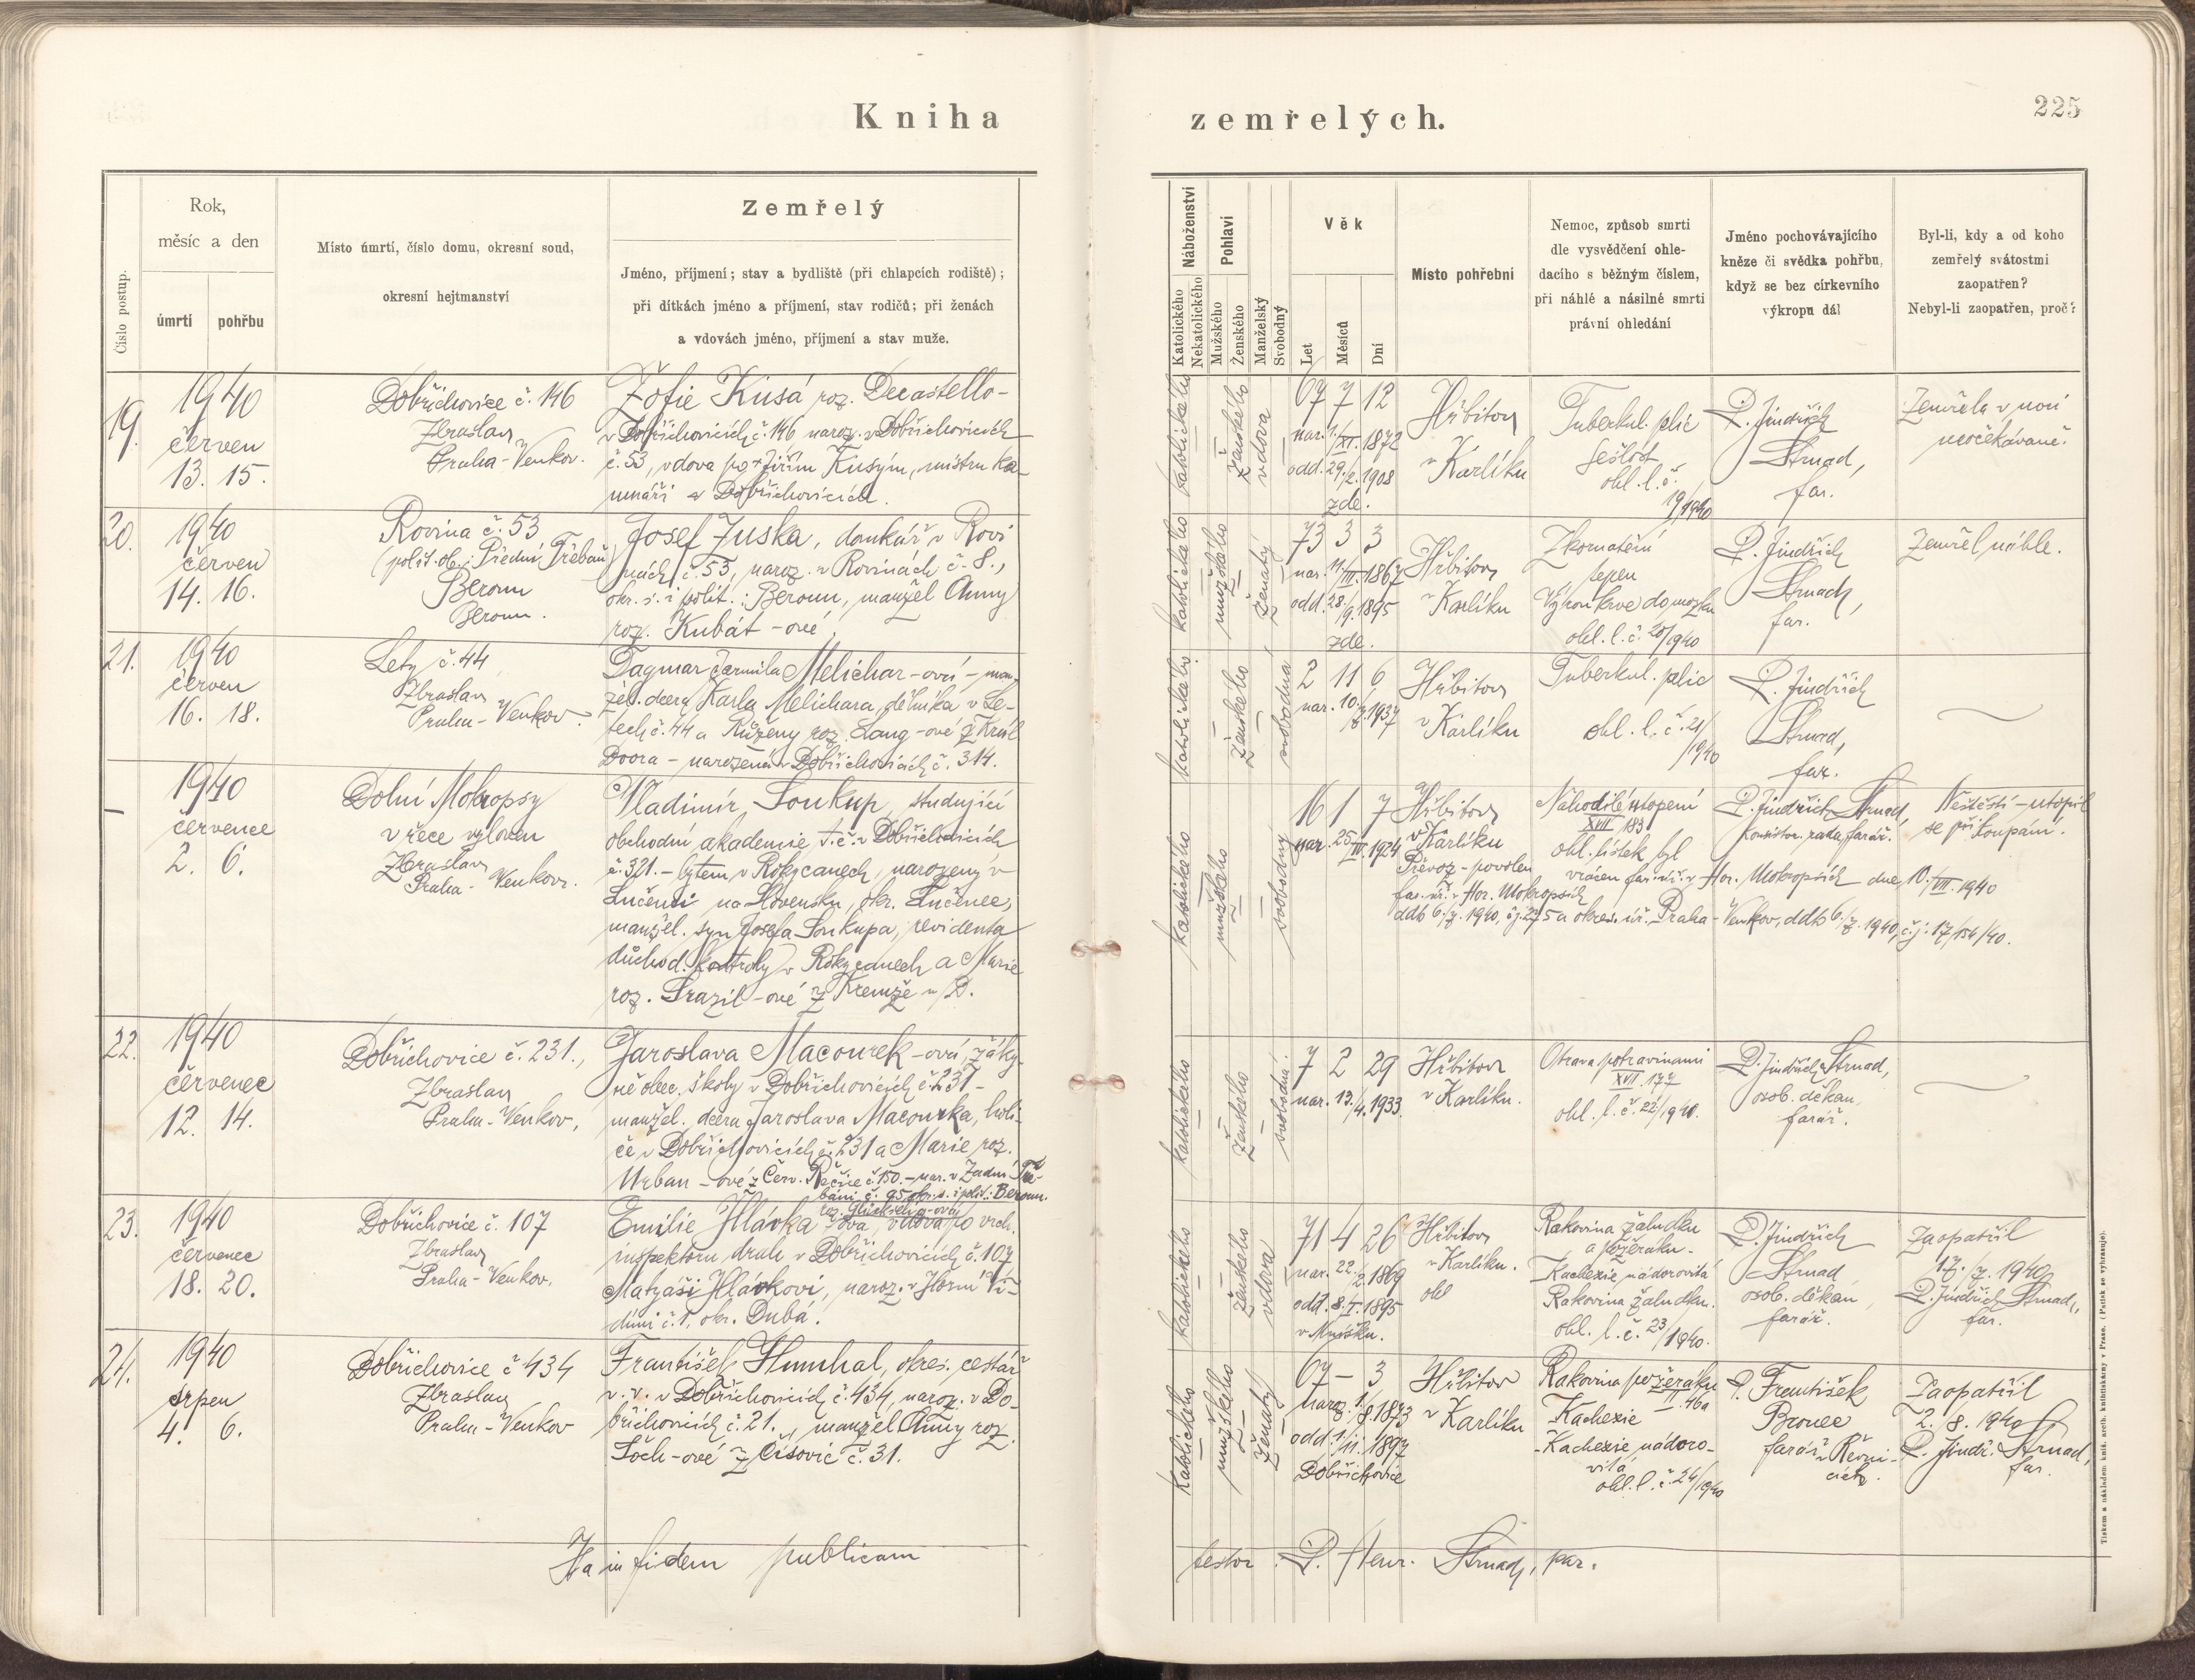 Kniha zemřelých.
225
Číslo postup.
Rok,
měsíc a den
úmrtí
pohřbu
Místo úmrtí, číslo domu, okresní soud,
okresní hejtmanství
Zemřelý
Jméno, příjmení; stav a bydliště (při chlapcích rodiště);
při dítkách jméno a příjmení, stav rodičů; při ženách
a vdovách jméno, příjmení a stav muže.
Náboženství
Katolického
Nekatolického
Pohlaví
Mužského
Ženského
Manželský
Svobodný
Věk
Let
Měsíců
Dní
Místo pohřební
Nemoc, způsob smrti
dle vysvědčení ohle-
dacího s běžným číslem,
při náhlé a násilné smrti
právní ohledání
Jméno pochovávajícího
kněze či svědka pohřbu,
když se bez církevního
výkropu dál
Byl-li, kdy a od koho
zemřelý svátostmi
zaopatřen?
Nebyl-li zaopatřen, proč?
19.
1940
červen
13. 15.
Dobřichovice č. 146
Zbraslav
Praha-Venkov.
Žofie Kusá roz. Decastello-
v Dobřichovicích č. 146 naroz. v Dobřichovicích
č. 53, vdova po + Jiřím Kusým, mistru ka-
menáři v Dobřichovicích.
katolického
ženského
vdova
67 7 12
nar. 1./XI. 1872
odd. 29./2. 1908
zde.
Hřbitov
v Karlíku
Tuberkul. plic
Sešlost
ohl. l. č.
19/1940
P. Jindřich
Strnad,
far.
Zemřela v noci
neočekávaně.
20.
1940
červen
14. 16.
Rovina č. 53
(polit. ob.: Přední Třebaň)
Beroun
Beroun.
Josef Zuska, domkář v Rovi
nách č. 53, naroz. v Rovinách č. 8.,
okr. s. i polit.: Beroun, manžel Anny
roz. Kubát-ové.
katolického
mužského
ženatý
73 3 3
nar. 11/III. 1867
odd. 28./9. 1895
zde.
Hřbitov
v Karlíku
Zkornatění
tepen
Výron krve do mozku
ohl. l. č. 20/1940
P. Jindřich
Strnad,
far.
Zemřel náhle.
21.
1940
červen
16. 18.
Lety č. 44
Zbraslav
Praha-Venkov.
Dagmar Jarmila Melichar-ová - man-
žel. dcera Karla Melichara, dělníka v Le-
tech č. 44 a Růženy roz. Lang-ové z Král.
Dvora - narozená v Dobřichovicích č. 314.
katolického
ženského
svobodná
2 11 6
nar. 10./7. 1937
Hřbitov
v Karlíku
Tuberkul. plic
ohl. l. č. 21/
1940
P. Jindřich
Strnad,
far.
–
1940
července
2. 6.
Dolní Mokropsy
v řece vyloven
Zbraslav
Praha-Venkov.
Vladimír Soukup, studující
obchodní akademie t. č. v Dobřichovicích
č. 321. - bytem v Rokycanech, narozený v
Lučenci na Slovensku, okr. Lučenec,
manžel. syn Josefa Soukupa, revidenta
důchod. kontroly v Rokycanech a Marie
roz. Srazil-ové z Kremže n/D.
katolického
mužského
svobodný
16 1 7
nar. 25/III. 1924
Hřbitov
v Karlíku
Převoz - povolen
far. úř. v Hor. Mokropsích
ddto 6./7. 1940, čj. 225 a okres. úř. Praha-Venkov, ddto 6./7. 1940, č.j.: 17/154/40.
Náhodilé utopení
XVII 183
ohl. lístek byl
vrácen far. úř. v Hor. Mokropsích dne 10./VII. 1940
P. Jindřich Strnad,
konsistor. rada, farář.
Neštěstí - utopil
se při koupání.
22.
1940
červenec
12. 14.
Dobřichovice č. 231.,
Zbraslav
Praha-Venkov,
Jaroslava Macourek-ová, žáky-
ně obec. školy v Dobřichovicích č. 231 -
manžel. dcera Jaroslava Macourka, holi-
če v Dobřichovicích č. 231 a Marie roz.
Urban-ové z Červ. Řečice č. 150. - nar. v Zadní Tře-
bani č. 95 okr. s. i polit.: Beroun.
katolického
ženského
svobodná.
7 2 29
nar. 13./4. 1933.
Hřbitov
v Karlíku.
Otrava potravinami
XVII. 177
ohl. l. č. 22/1940.
P. Jindřich Strnad,
osob. děkan,
farář.
23.
1940
červenec
18. 20.
Dobřichovice č. 107
Zbraslav
Praha-Venkov.
Emilie Hlávka-ová, vdova po vrch.
inspektoru drah v Dobřichovicích č. 107
Matyáši Hlávkovi, naroz. v Horní Vi-
dimi č. 1, okr. Dubá.
katolického
ženského
vdova
71 4 26
nar. 22./2. 1869
odd. 8./I. 1895
v Mníšku.
Hřbitov
v Karlíku.
ohl
Rakovina žaludku
a požeráku -
Kachexie nádorovitá
Rakovina žaludku.
ohl. l. č. 23/1940.
P. Jindřich
Strnad
osob. děkan,
farář.
Zaopatřil
17. 7. 1940
P. Jindřich Strnad,
far.
24.
1940
srpen
4. 6.
Dobřichovice č 434
Zbraslav
Praha-Venkov
František Humhal, okres. cestář
v. v. v Dobřichovicích č. 434, naroz. v Do-
břichovicích č. 21., manžel Anny roz.
Soch-ové z Čisovic č. 31.
katolického
mužského
ženatý
67 – 3
naroz. 1./8. 1873
odd. 1./11. 1897
Dobřichovice
Hřbitov
v Karlíku
Rakovina požeráku
II. 46a
Kachexie
-Kachexie nádoro-
vitá
ohl. l. č. 24/1940
P. František
Brouce
farář v Řevni-
cích.
Zaopatřil
2./8. 1940
P. Jindř. Strnad,
far.
Ita in fidem publicam
testor: P. Henr. Strnad, par.
Tiskem a nákladem kníž. arcib. knihtiskárny v Praze. (Patisk se vyhrazuje).